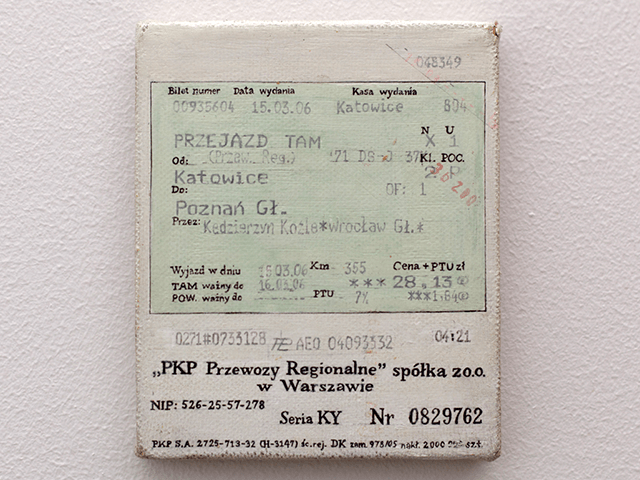 048349
Bilet numer Data wydania Kasa wydania
00935604 15.03.06 Katowice 804
PRZEJAZD TAM N U
X 1
Od: (Przew. Reg.) '71 DS-J 37% Kl. POC.
Katowice 2
Do: OF: 1
Poznań Gł.
Przez: Kędzierzyn Koźle*Wrocław Gł.*
Wyjazd w dniu 15.03.06 Km 355 Cena + PTU zł
TAM ważny do 16.03.06 ***28,13
POW. ważny do PTU 7% ***1,84
0271#0733128 AEO 04093332 04:21
„PKP Przewozy Regionalne” spółka zo.o.
w Warszawie
NIP: 526-25-57-278
Seria KY Nr 0829762
PKP S.A. 2725-713-32 (H-3147) śc.rej. DK zam. 973/05 nakł. 2000 szt.